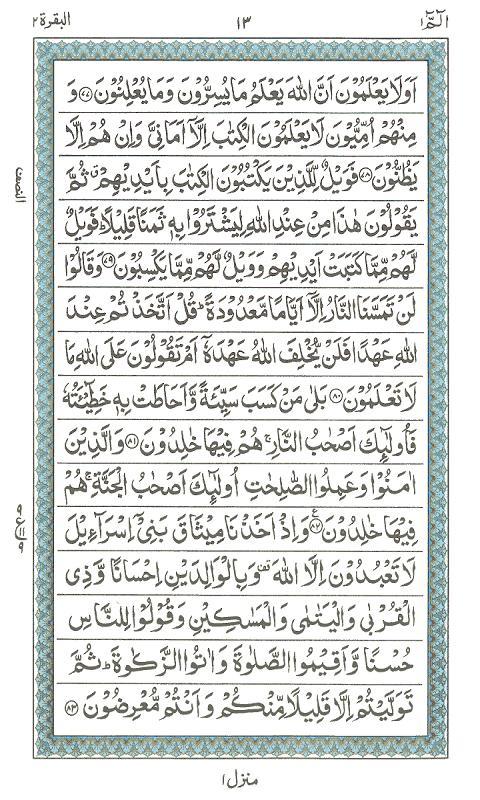 الٓمّٓ ١
١٣
البقرة ٢
اَوَلَا يَعْلَمُوْنَ اَنَّ اللّٰهَ يَعْلَمُ مَا يُسِرُّوْنَ وَمَا يُعْلِنُوْنَ ﴿٧٧﴾ وَ
مِنْهُمْ اُمِّيُّوْنَ لَا يَعْلَمُوْنَ الْكِتٰبَ اِلَّاۤ اَمَانِيَّ وَاِنْ هُمْ اِلَّا
يَظُنُّوْنَ ﴿٧٨﴾ فَوَيْلٌ لِّلَّذِيْنَ يَكْتُبُوْنَ الْكِتٰبَ بِاَيْدِيْهِمْ ۗ ثُمَّ
يَقُوْلُوْنَ هٰذَا مِنْ عِنْدِ اللّٰهِ لِيَشْتَرُوْا بِهٖ ثَمَنًا قَلِيْلًا ؕ فَوَيْلٌ
لَّهُمْ مِّمَّا كَتَبَتْ اَيْدِيْهِمْ وَوَيْلٌ لَّهُمْ مِّمَّا يَكْسِبُوْنَ ﴿٧٩﴾ وَقَالُوْا
لَنْ تَمَسَّنَا النَّارُ اِلَّاۤ اَيَّامًا مَّعْدُوْدَةً ؕ قُلْ اَتَّخَذْتُمْ عِنْدَ
اللّٰهِ عَهْدًا فَلَنْ يُّخْلِفَ اللّٰهُ عَهْدَهٗۤ اَمْ تَقُوْلُوْنَ عَلَى اللّٰهِ مَا
لَا تَعْلَمُوْنَ ﴿٨٠﴾ بَلٰى مَنْ كَسَبَ سَيِّئَةً وَّاَحَاطَتْ بِهٖ خَطِيْٓـَٔتُهٗ
فَاُولٰٓئِكَ اَصْحٰبُ النَّارِ ۚ هُمْ فِيْهَا خٰلِدُوْنَ ﴿٨١﴾ وَالَّذِيْنَ
اٰمَنُوْا وَعَمِلُوا الصّٰلِحٰتِ اُولٰٓئِكَ اَصْحٰبُ الْجَنَّةِ ۚ هُمْ
فِيْهَا خٰلِدُوْنَ ﴿٨٢﴾ وَاِذْ اَخَذْنَا مِيْثَاقَ بَنِيْۤ اِسْرَآءِيْلَ
لَا تَعْبُدُوْنَ اِلَّا اللّٰهَ ۟ وَبِالْوَالِدَيْنِ اِحْسَانًا وَّذِي
الْقُرْبٰى وَالْيَتٰمٰى وَالْمَسٰكِيْنِ وَقُوْلُوْا لِلنَّاسِ
حُسْنًا وَّاَقِيْمُوا الصَّلٰوةَ وَاٰتُوا الزَّكٰوةَ ؕ ثُمَّ
تَوَلَّيْتُمْ اِلَّا قَلِيْلًا مِّنْكُمْ وَاَنْتُمْ مُّعْرِضُوْنَ ﴿٨٣﴾
النصف
منزل ١